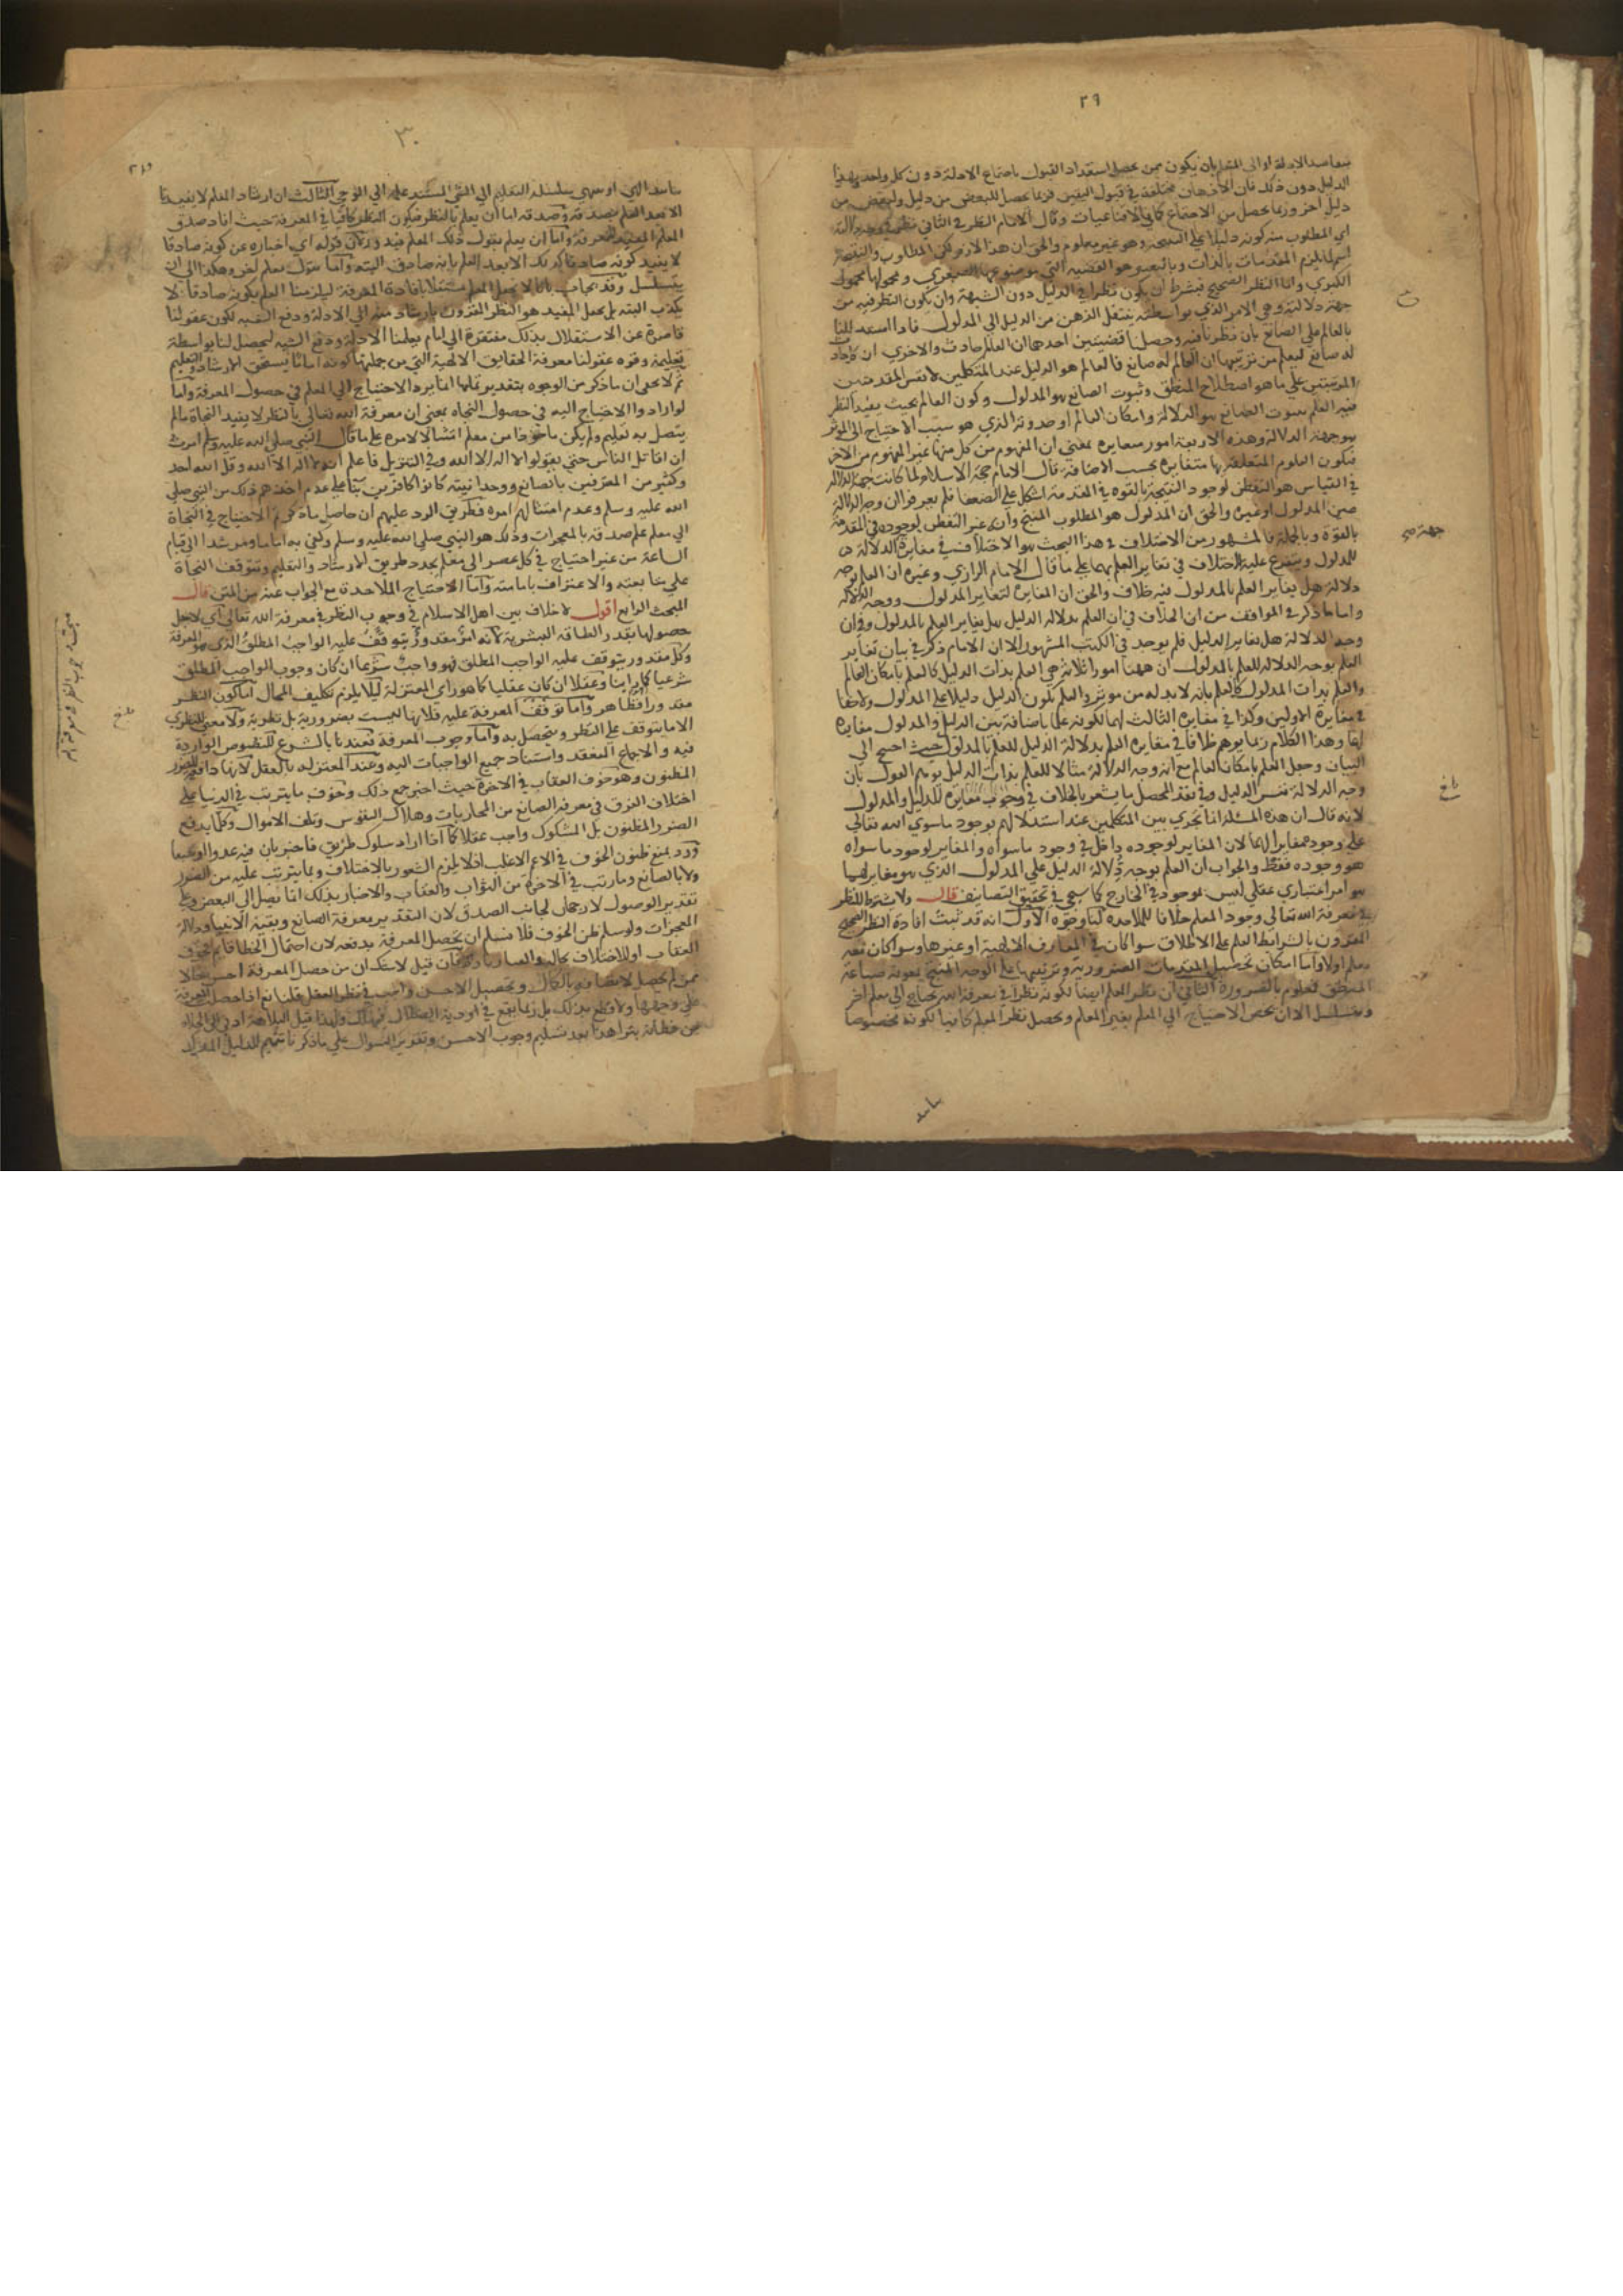 ٢٩
الدليل دون ذلك فان الاذهان مختلفة في قبول اليقين فربما يحصل للبعض من دليل ولبعض من
دليل اخر وربما يحصل من الاجتماع كما في الاقناعيات وقال الامام النظر في الثاني
اي المطلوب من كونه دليلا على النتيجة وهو غير معلوم والحق ان هذا لازم
الكبري واما النظر الصحيح فيشترط ان يكون نظرا في الدليل دون الشبهة وان يكون النظر فيه من
جهة دلالته وهي الامر الذي بواسطته ينتقل الذهن من الدليل الي المدلول فاذا استدللنا
بالعالم علي الصانع بان نظرنا فيه وحصلنا قضيتين احدهما ان العالم حادث والاخري ان كل حادث
له صانع ليعلم من ترتيبهما ان العالم له صانع فالعالم هو الدليل عند المتكلمين لا نفس المقدمتين
المرتبتين علي ما هو اصطلاح المنطق وثبوت الصانع هو المدلول وكون العالم بحيث يفيد النظر
فيه العلم بثبوت الصانع هو الدلالة وامكان العالم او حدوثه الذي هو سبب الاحتياج الي المؤثر
هو جهة الدلالة وهذه الاربعة امور متغايرة بمعني ان المفهوم من كل منها غير المفهوم من الاخر
فيكون العلوم المتعلقة بها متغايرة بحسب الاضافة قال الامام حجة الاسلام ولما كانت جهة الدلالة
في القياس هو التفطن لوجود النتيجة بالقوة في المقدمة اشكل علي الضعفا فلم يعرفوا ان وجه الدلالة
عين المدلول او غيره والحق ان المدلول هو المطلوب المنتج وانه غير التفطن لوجوده في المقدمة
بالقوة وبالجملة فالمشهور من الاختلاف في هذا البحث هو الاختلاف في مغايرة الدلالة
للمدلول ويتفرع عليه الاختلاف في تغاير العلم بهما علي ما قال الامام الرازي وغيره ان العلم بوجه
دلالة هل يغاير العلم بالمدلول فيه خلاف والحق ان المغايرة لتغاير المدلول ووجه الدلالة
واما ما ذكر في المواقف من ان الخلاف في ان العلم بدلالة الدليل هل يغاير العلم بالمدلول وفي ان
وجه الدلالة هل يغاير الدليل فلم يوجد في الكتب المشهورة الا ان الامام ذكر في بيان تغاير
العلم بوجه الدلالة للعلم بالمدلول ان ههنا امورا ثلاثة هي العلم بذات الدليل كالعلم بامكان العالم
والعلم بذات المدلول كالعلم بانه لا بد له من مؤثر والعلم بكون الدليل دليلا علي المدلول ولا خفا
في مغايرة الاولين وكذا في مغايرة الثالث لهما لكونه علما باضافة بين الدليل والمدلول مغايرة
لهما وهذا الكلام ربما يوهم خلافا في مغايرة العلم بدلالة الدليل للعلم بالمدلول حيث احتيج الي
البيان وجعل العلم بامكان العالم مع انه وجه الدلالة مثالا للعلم بذات الدليل يوهم القول بان
وجه الدلالة نفس الدليل وفي نقد المحصل ما يشعر بالخلاف في وجوب مغايرته للدليل والمدلول
لانه قال ان هذه المسئلة انما تجري بين المتكلمين عند استدلالهم بوجود ما سوي الله تعالي
علي وجوده فقالوا لان المغاير لوجوده داخل في وجود ما سواه والمغاير لوجود ما سواه
هو وجوده فقط والجواب ان العلم بوجه دلالة الدليل علي المدلول الذي هو مغاير لهما
هو امر اعتباري عقلي ليس بموجود في الخارج كما سيجي في تحقيق التضايف قال ولا يشترط للنظر
في معرفة الله تعالي وجود المعلم خلافا للملاحدة لنا وجوه الاول انه قد ثبت افادة النظر الصحيح
المقرون بالشرائط العلم علي الاطلاق سوا كان في المعارف الالهية او غيرها وسوا كان معه
معلم اولا واما امكان تحصيل المقدمات الضرورية وترتيبها علي الوجه المنتج بمعونة صناعة
المنطق فمعلوم بالضرورة الثاني ان نظر المعلم ايضا لكونه نظرا في معرفة الله يحتاج الي معلم اخر
ويتسلسل الا ان يخص الاحتياج الي المعلم بغير المعلم ويجعل نظر المعلم كافيا لكونه مخصوصا
جهة صح
بلغ
٣٠
بتاييد الهي او ينتهي سلسلة التعليم الي النبي المستند علمه الي الوحي الثالث ان ارشاد المعلم لا يفيدنا
الا بعد العلم بصدقه وصدقه اما ان يعلم بالنظر فيكون النظر كافيا في المعرفة حيث افاد صدق
المعلم المفيد للمعرفة واما ان يعلم بقول ذلك المعلم فيدور لان قوله اي اخباره عن كونه صادقا
لا يفيد كونه صادقا الا بعد العلم بانه صادق البتة واما بقول معلم اخر وهكذا الي ان
يتسلسل وقد يجاب بانا لا نجعل المعلم مستقلا بافادة المعرفة ليلزمنا العلم بكونه صادقا لا
يكذب البتة بل نجعل المفيد هو النظر المقرون بارشاد منه الي الادلة ودفع الشبه لكون عقولنا
قاصرة عن الاستقلال بذلك مفتقرة الي امام يعلمنا الادلة ودفع الشبه ليحصل لنا بواسطة
تعليمه وقوة عقولنا معرفة الحقايق الالهية التي من جملتها كونه اماما يستحق الارشاد والتعليم
ثم لا يخفي ان ما ذكر من الوجوه بتقدير تمامها انما يرد الاحتياج الي المعلم في حصول المعرفة واما
لو ارادوا الاحتياج اليه في حصول النجاة بمعني ان معرفة الله تعالي بالنظر لا يفيد النجاة ما لم
يتصل به تعليم ولم يكن ماخوذا من معلم امتثالا لامره علي ما قال النبي صلي الله عليه وسلم امرت
ان اقاتل الناس حتي يقولوا لا اله الا الله وفي التنزيل فاعلم انه لا اله الا الله وقل الله احد
وكثير من المعترفين بالصانع ووحدانيته كانوا كافرين بنا علي عدم اخذهم ذلك من النبي صلي
الله عليه وسلم وعدم امتثالهم امره فطريق الرد عليهم ان حاصل ما ذكرتم الاحتياج في النجاة
الي معلم علم صدقه بالمعجزات وذلك هو النبي صلي الله عليه وسلم وكفي به اماما ومرشدا الي قيام
الساعة من غير احتياج في كل عصر الي معلم يجدد طريق الارشاد والتعليم وتتوقف النجاة
علي متابعته والاعتراف بامامته واما الاحتياج الملاحدة مع الجواب عنه من المتن قال
المبحث الرابع اقول لا خلاف بين اهل الاسلام في وجوب النظر في معرفة الله تعالي اي لاجل
حصولها بقدر الطاقة البشرية لانه امر مقدور يتوقف عليه الواجب المطلق الذي هو المعرفة
وكل مقدور يتوقف عليه الواجب المطلق فهو واجب شرعا ان كان وجوب الواجب المطلق
شرعيا كما راينا وعقلا ان كان عقليا كما هو راي المعتزلة ليلا يلزم تكليف المحال اما كون النظر
مقدورا فظاهر واما توقف المعرفة عليه فلانها ليست بضرورية بل نظرية ولا معني للنظري
الا ما يتوقف علي النظر ويتحصل به واما وجوب المعرفة فعندنا بالشرع للنصوص الواردة
فيه والاجماع المنعقد واستناد جميع الواجبات اليه وعند المعتزلة بالعقل لانها دافعة للضرر
المظنون وهو خوف العقاب في الاخرة حيث اخبر جمع ذلك وخوف ما يترتب في الدنيا علي
اختلاف الفرق في معرفة الصانع من المحاربات وهلاك النفوس وتلف الاموال وكل ما يدفع
الضرر المظنون بل المشكوك واجب عقلا كما اذا اراد سلوك طريق فاخبر بان فيه عدوا او سبعا
ورد بمنع ظنون الخوف في الاعم الاغلب اذ لا يلزم الشعور بالاختلاف وبما يترتب عليه من الضرر
ولا بالصانع وما رتب في الاخرة من الثواب والعقاب والاخبار بذلك انما تصل الي البعض وعلي
تقدير الوصول لا رجحان لجانب الصدق لان التقدير معرفة الصانع وبعثة الانبيا ودلالة
المعجزات ولو سلم ظن الخوف فلا نسلم ان تحصيل المعرفة يدفعه لان احتمال الخطا قائم فخوف
العقاب او الاختلاف بحاله فان قيل لا شك ان من حصل المعرفة احسن حالا
ممن لم يحصل لاتصافه بالكمال وتحصيل الاحسن واجب في نظر العقل قلنا نعم اذا حصل المعرفة
علي وجهها ولا قطع بذلك بل ربما يقع في اودية الضلال ولهذا قيل البلاهة ادني الي الخلاص
من فطانة بترا هذا بعد تسليم وجوب الاحسن وتقرير السوال علي ما ذكرنا تتميم للدليل المذكور
بلغ